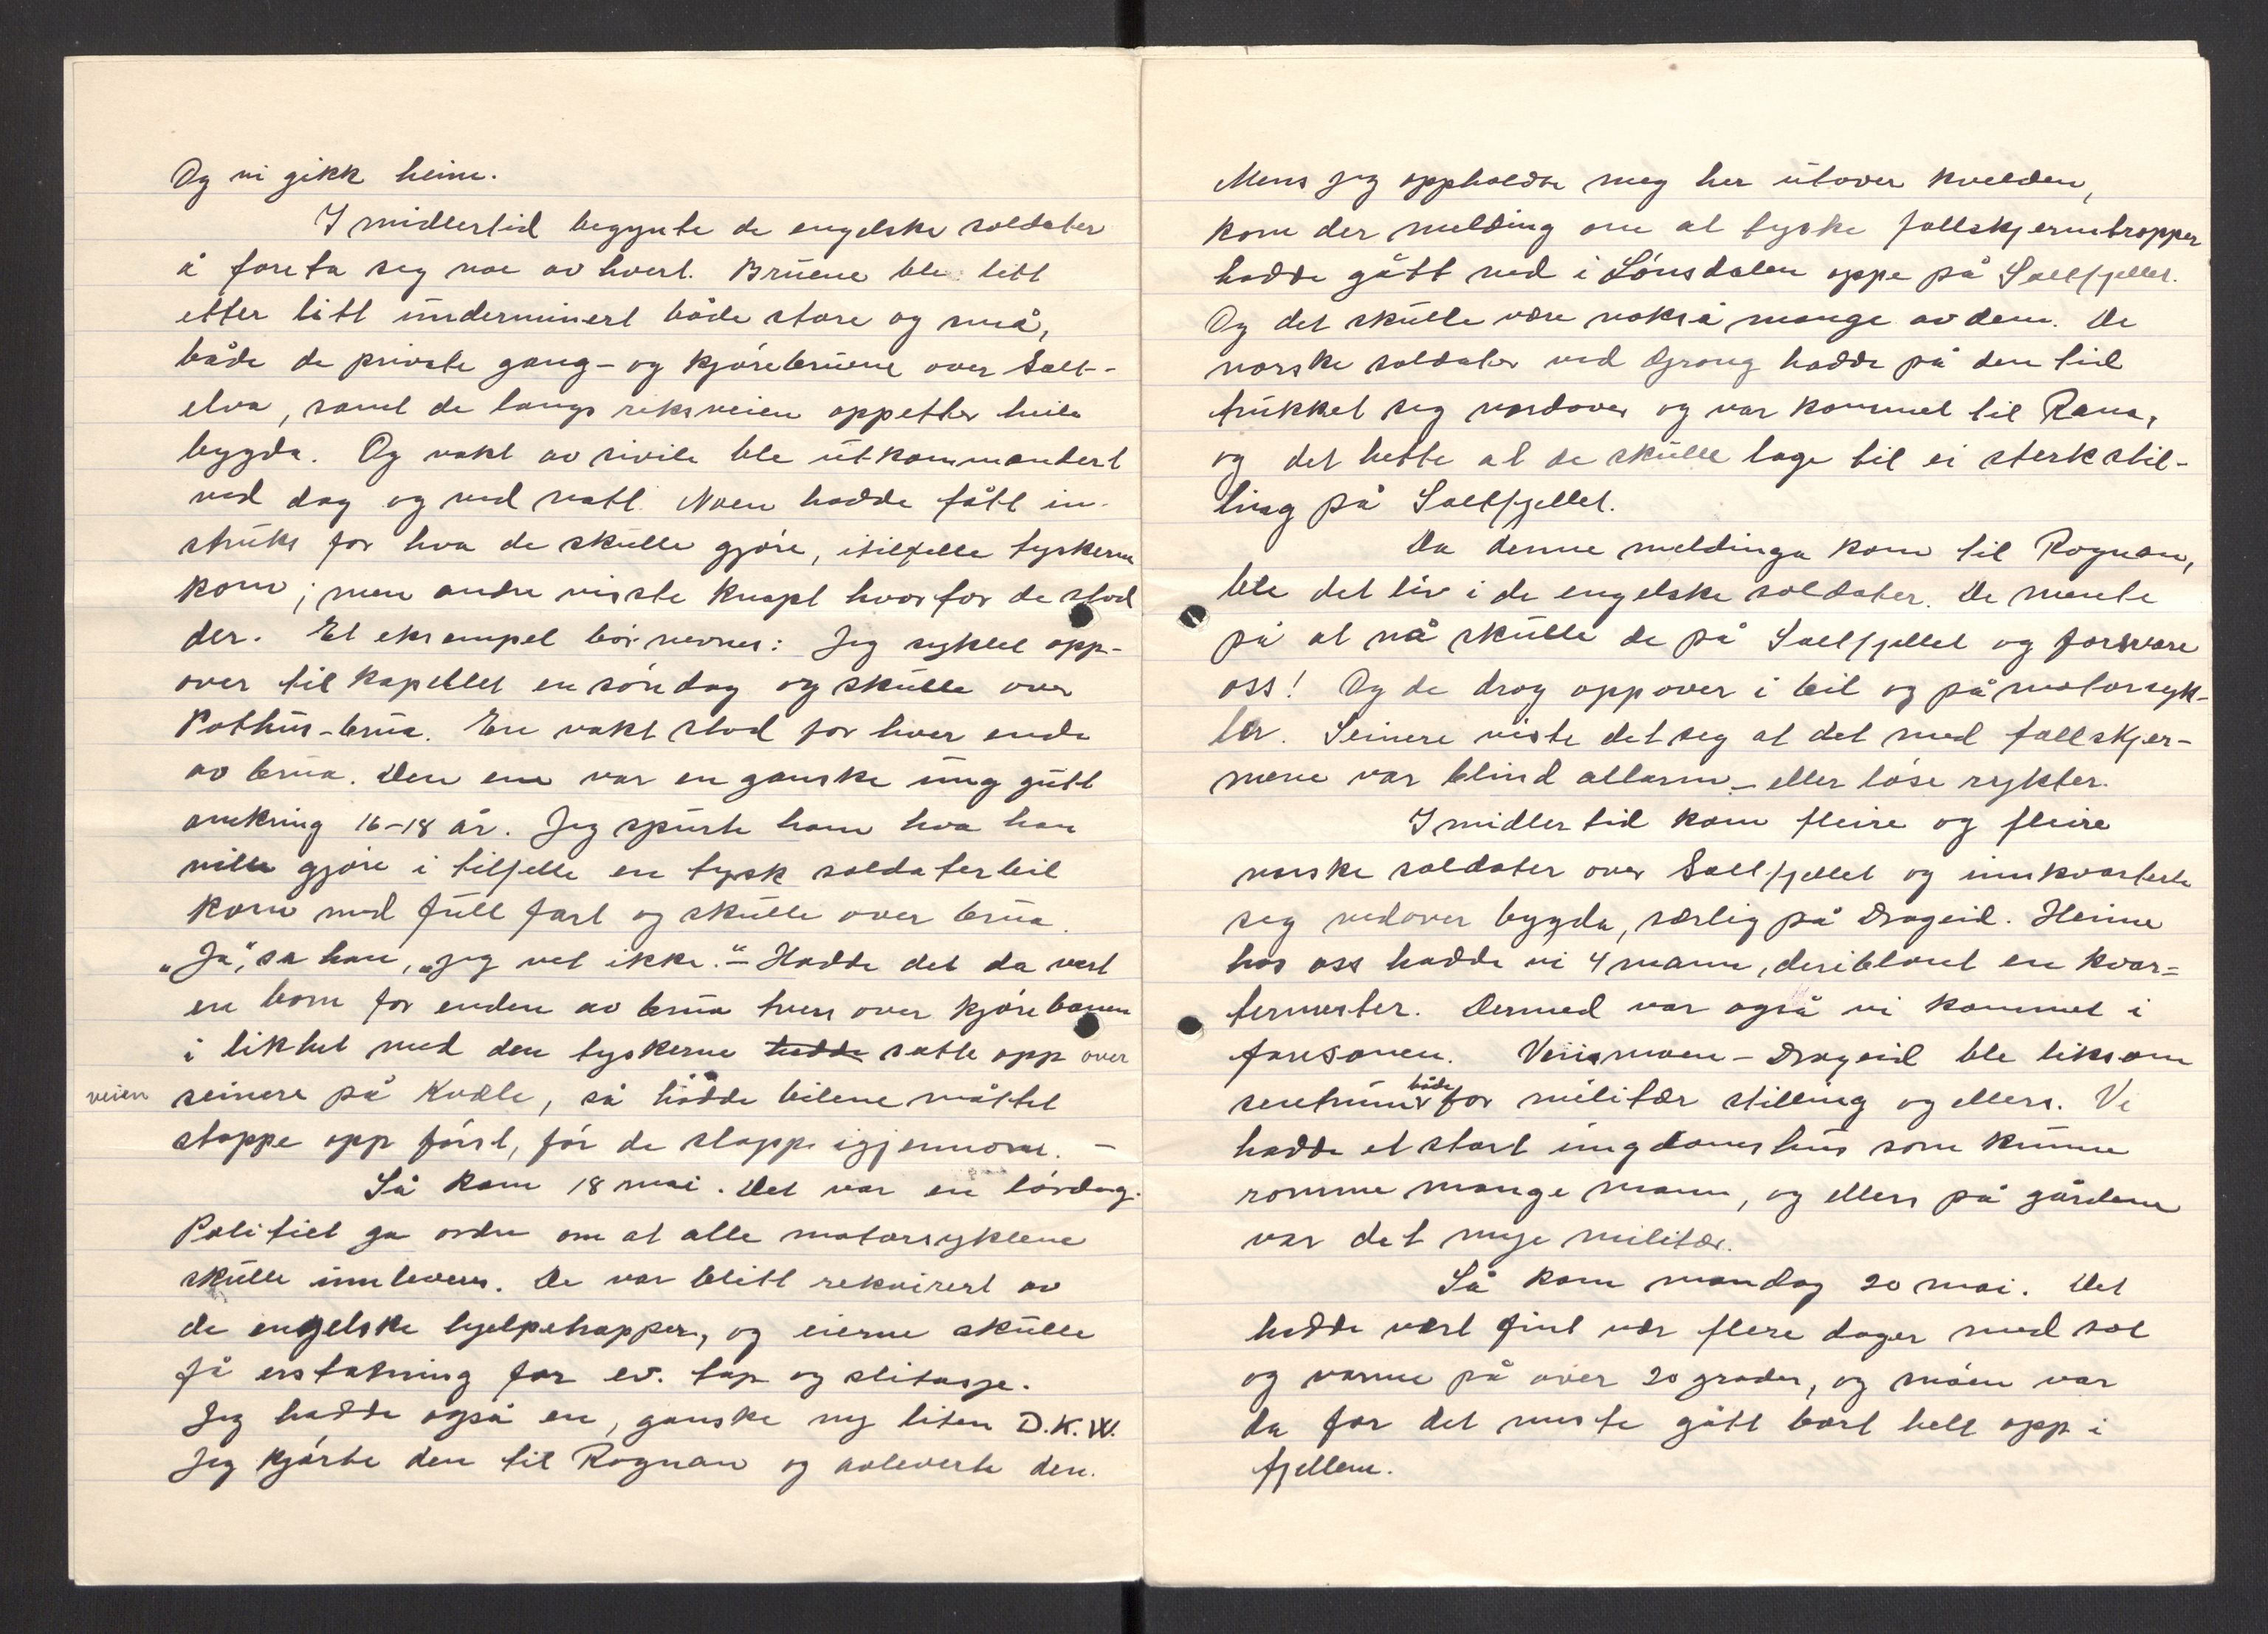 Og vi gikk heim.
Imidlertid begynte de engelske soldater
å foreta seg noe av hvert. Bruene ble litt
etter litt underminert både store og små,
både de private gang- og kjørebruene over Salt-
elva, samt de langs riksveien oppetter heile
bygda. Og vakt av sivile ble utkommandert
ved dag og ved natt. Noen hadde fått in-
struks for hva de skulle gjøre, itilfelle tyskerne
kom; men andre visste knapt hvorfor de stod
der. Et eksempel bør nevnes: Jeg syklet opp-
over til kapellet en søndag og skulle over
Pothus-brua. En vakt stod for hver ende
av brua. Den ene var en ganske ung gutt
omkring 16-18 år. Jeg spurte ham hva han
ville gjøre i tilfelle en tysk soldaterbil
kom med full fart og skulle over brua.
„Ja", sa han, „jeg vet ikke." - Hadde det da vært
en bom for enden av brua tvers over kjørebanen
i likhet med den tyskerne hadde satte opp over
veien seinere på Kvæle, så hadde bilene måttet
stoppe opp først, før de slapp igjennom. -
Så kom 18 mai. Det var en lørdag.
Politiet ga ordre om at alle motorsyklene
skulle innleveres. De var blitt rekvirert av
de engelske hjelpetropper, og eierne skulle
få erstatning for ev. tap og slitasje.
Jeg hadde også en, ganske ny liten D.K.W.
Jeg kjørte den til Rognan og avleverte den.
Mens jeg oppholdt meg her utover kvelden,
kom der melding om at tyske fallskjermtropper
hadde gått ned i Lønsdalen oppe på Saltfjellet.
Og det skulle være nokså mange av dem. De
norske soldater ved Grong hadde på den tid
trukket seg nordover og var kommet til Rana,
og det hette at de skulle lage til ei sterk stil-
ling på Saltfjellet.
Da denne meldinga kom til Rognan,
ble det liv i de engelske soldater. De mente
på at nå skulle de på Saltfjellet og forsvare
oss! Og de drog oppover i bil og på motorsyk-
ler. Seinere viste det seg at det med fallskjer-
mene var blind allarm - eller løse rykter.
Imidlertid kom fleire og fleire
norske soldater over Saltfjellet og innkvarterte
seg nedover bygda, særlig på Drageid. Heime
hos oss hadde vi 4 mann, deriblant en kvar=
termester. Dermed var også vi kommet i
faresonen. Vensmoen - Drageid ble liksom
sentrum både for militær stilling og ellers. Vi
hadde et stort ungdomshus som kunne
romme mange mann, og ellers på gårdene
var det mye militær.
Så kom mandag 20 mai. Det
hadde vært fint vær flere dager med sol
og varme på over 20 grader, og snøen var
da for det meste gått bort helt opp i
fjellene.